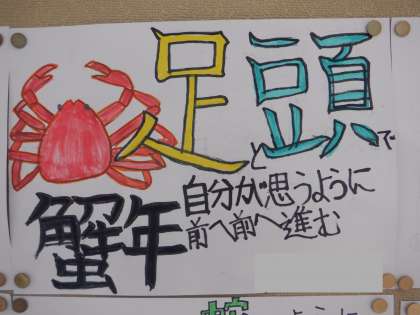 足と頭で
自分が思うように
前へ前へ進む
蟹年